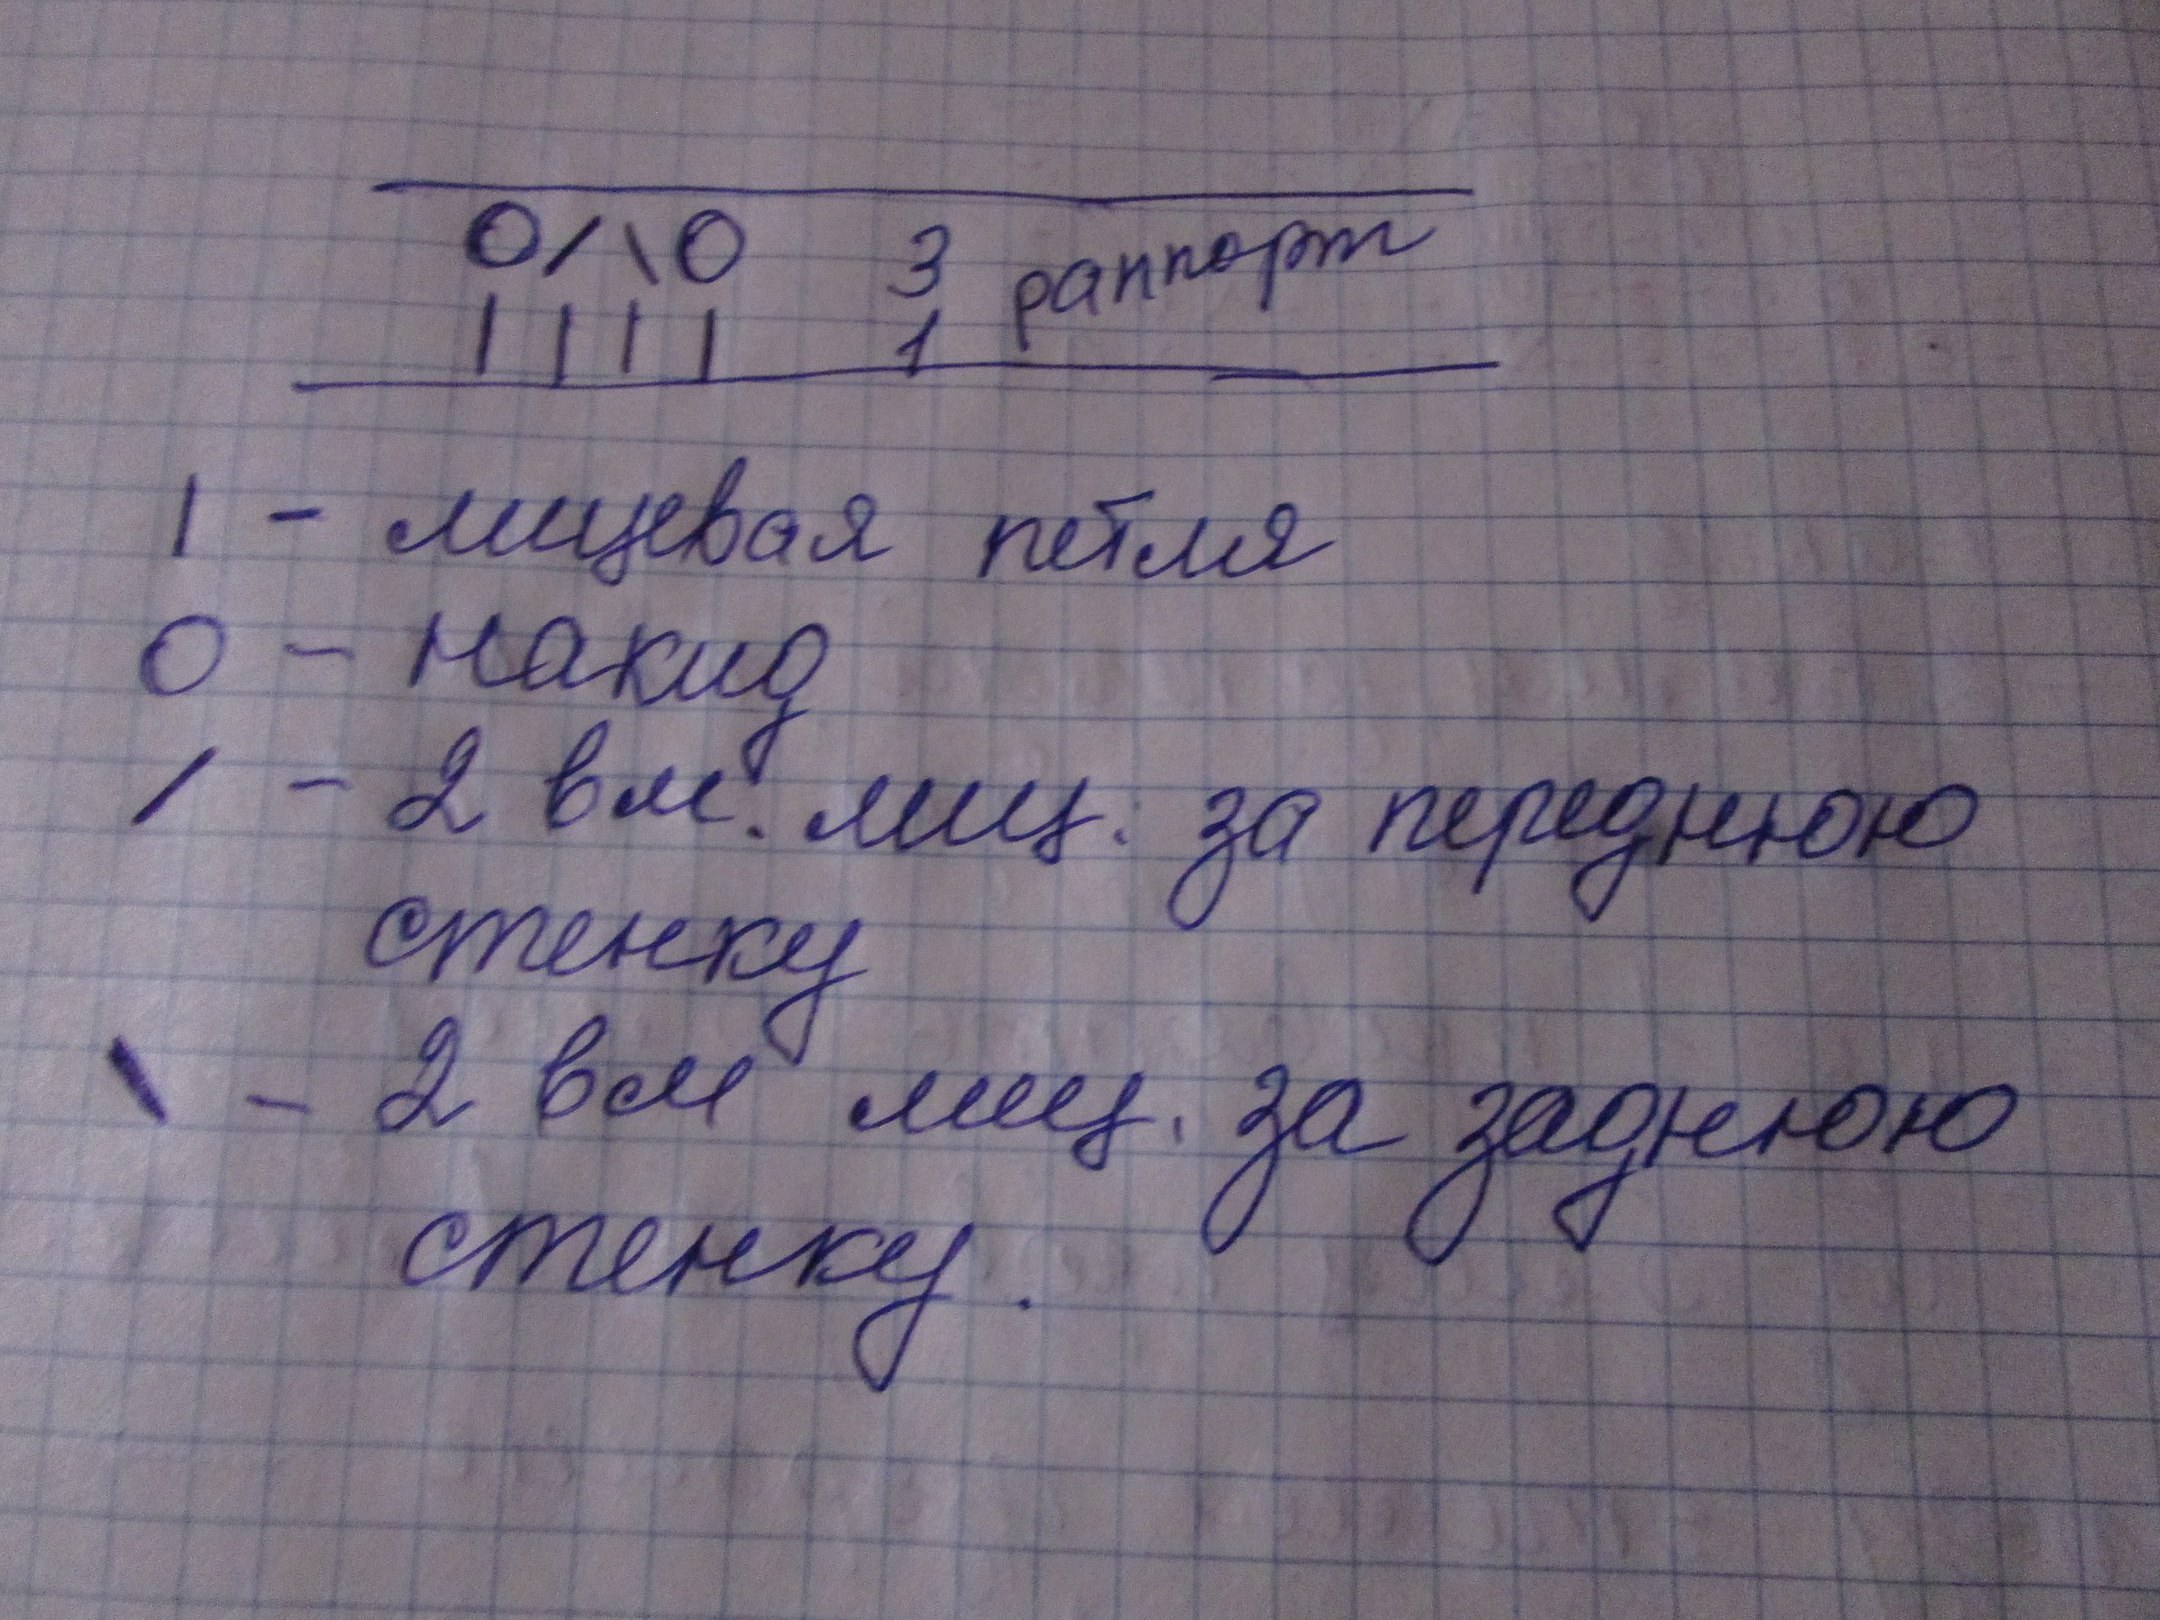 0 / \ 0 3 раппорт
| | | | 1
| - лицевая петля
0 - накид
/ - 2 вм. лиц. за переднюю
стенку
\ - 2 вм лиц. за заднюю
стенку.